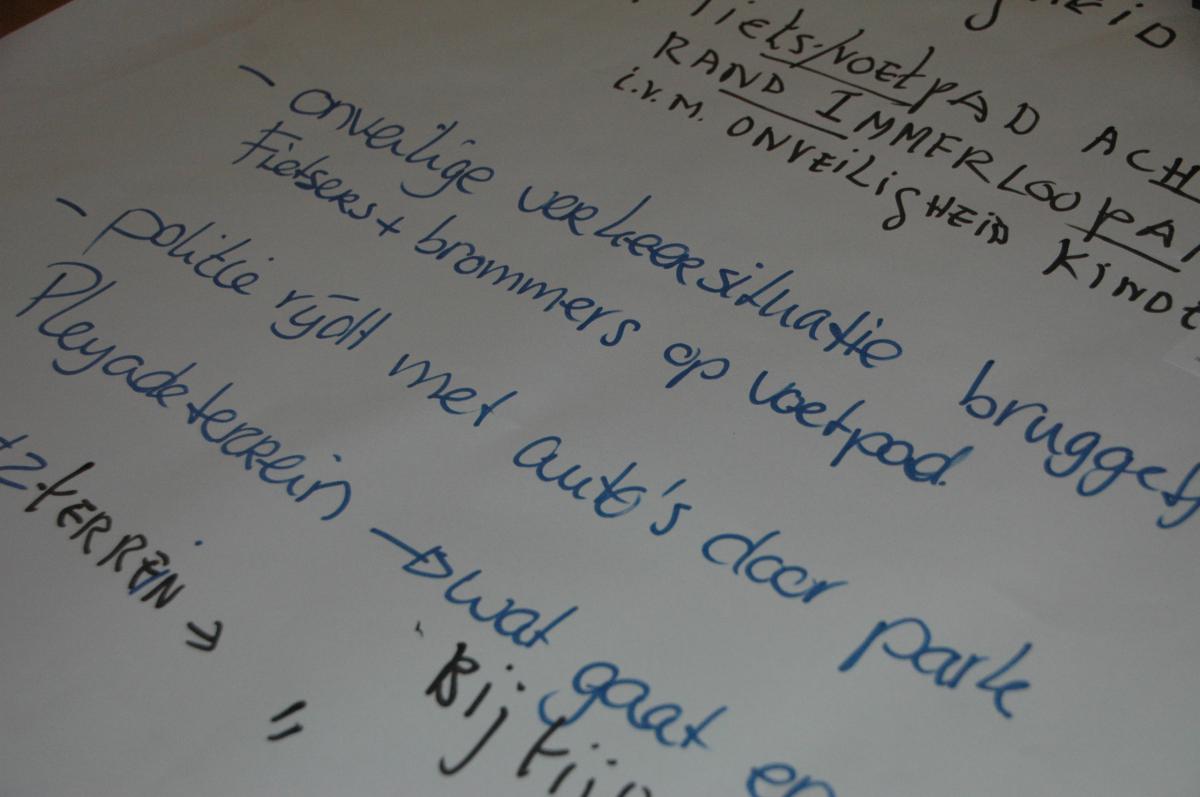 Fiets/voetpAD ACH
RAND IMMERLOOPA
i.v.m. ONVEiLigHEiD KIND
- onveilige verkeersituatie bruggetj
Fietsers + brommers op voetpad.
- politie rijdt met auto's door park
Pleyadeterrein → wat gaat er
tz-tERREiN → Bij
"